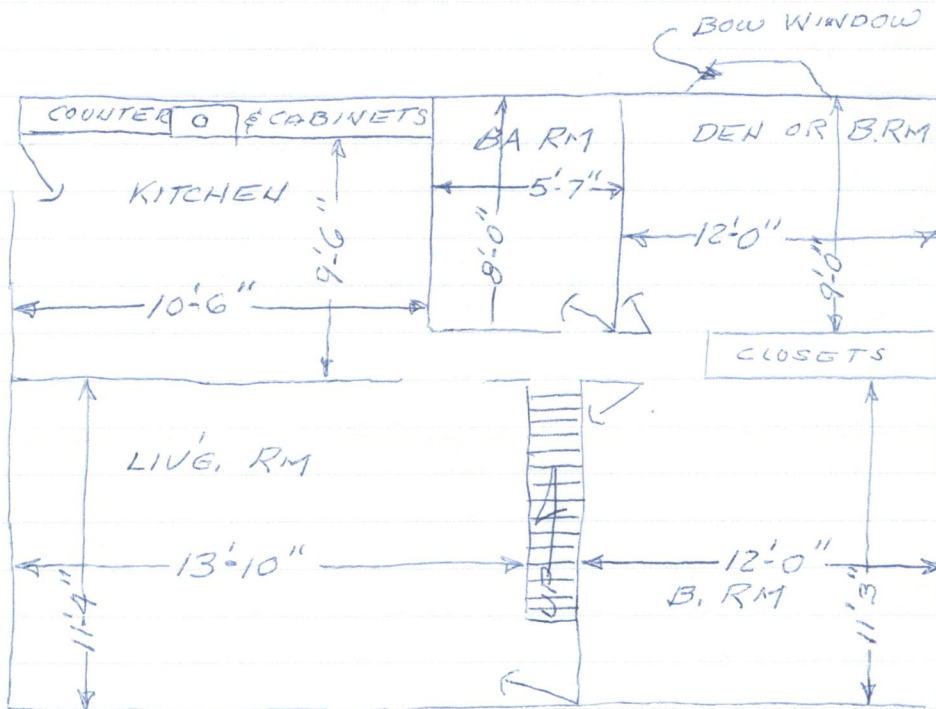 BOW WINDOW
COUNTER & CABINETS
BA RM
DEN OR B.RM
KITCHEN
5'-7"
12'-0"
9'-6"
8'-0"
9'-0"
10'-6"
CLOSETS
LIV'G. RM
13'-10"
UP
12'-0"
B. RM
11'-4"
11'-3"